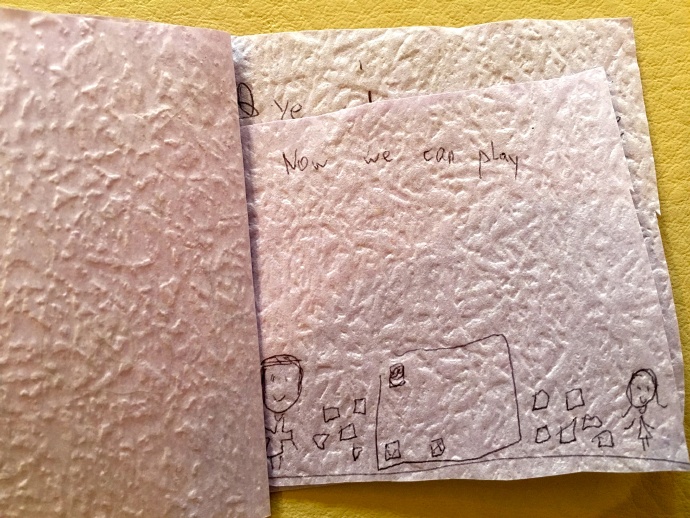 Ye
Now we can play